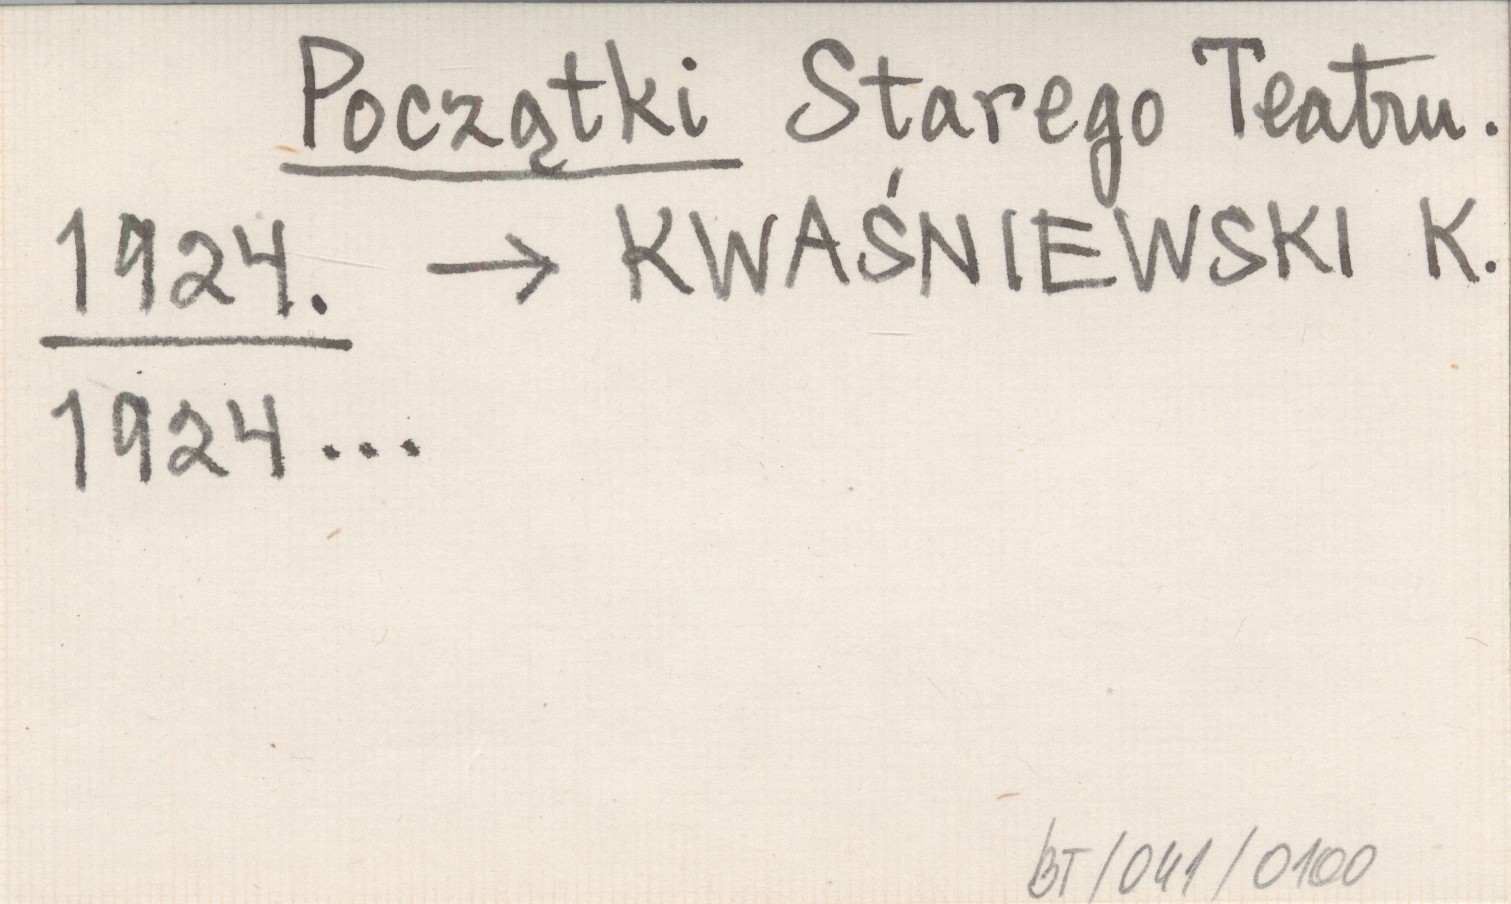 Początki Starego Teatru.
1924. → KWAŚNIEWSKI K.
1924...
BT/041/0100